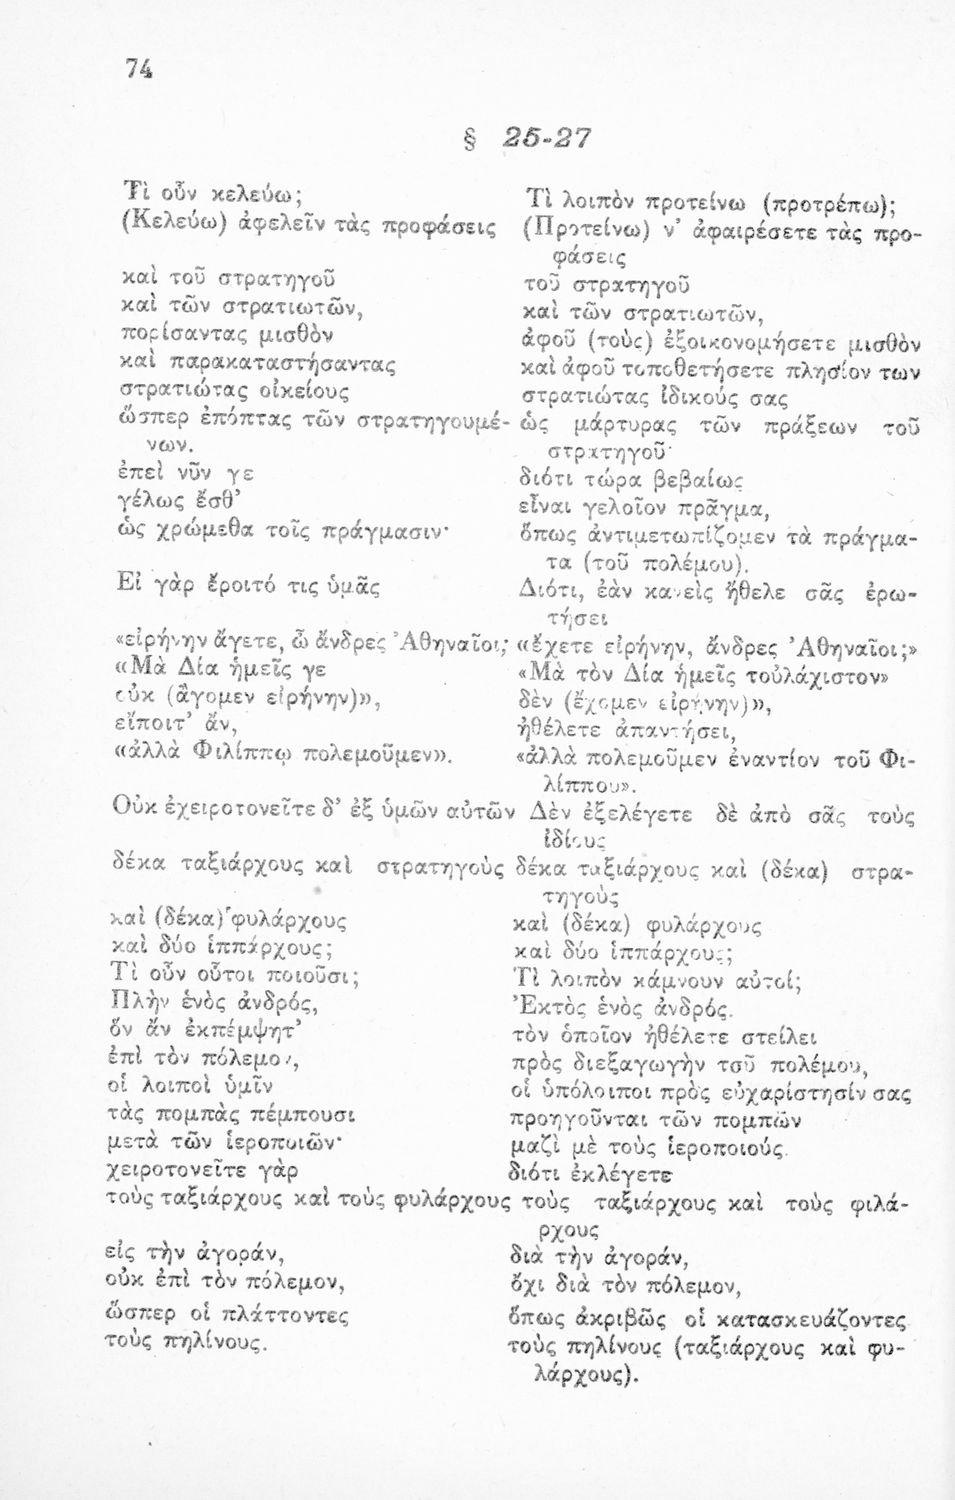 74
§ 25-27
Τὶ οὖν κελεύω;
(Κελεύω) ἀφελεῖν τὰς προφάσεις
καὶ τοῦ στρατηγοῦ
καὶ τῶν στρατιωτῶν,
πορίσαντας μισθὸν
καὶ παρακαταστήσαντας
στρατιώτας οἰκείους
ὥσπερ ἐπόπτας τῶν στρατηγουμέ-
νων.
ἐπεὶ νῦν γε
γέλως ἔσθ’
ὡς χρώμεθα τοῖς πράγμασιν·
Εἰ γὰρ ἔροιτό τις ὑμᾶς
«εἰρήνην ἄγετε, ὦ ἄνδρες Ἀθηναῖοι;
«Μὰ Δία ἡμεῖς γε
οὐκ (ἄγομεν εἰρήνην)»,
εἴποιτ’ ἄν,
«ἀλλὰ Φιλίππῳ πολεμοῦμεν».
Οὐκ ἐχειροτονεῖτε δ’ ἐξ ὑμῶν αὐτῶν
δέκα ταξιάρχους καὶ στρατηγοὺς
καὶ (δέκα) φυλάρχους
καὶ δύο ἱππάρχους;
Τὶ οὖν οὗτοι ποιοῦσι;
Πλὴν ἑνὸς ἀνδρός,
ὃν ἂν ἐκπέμψητ’
ἐπὶ τὸν πόλεμον,
οἱ λοιποὶ ὑμῖν
τὰς πομπὰς πέμπουσι
μετὰ τῶν ἱεροποιῶν·
χειροτονεῖτε γὰρ
τοὺς ταξιάρχους καὶ τοὺς φυλάρχους
εἰς τὴν ἀγοράν,
οὐκ ἐπὶ τὸν πόλεμον,
ὥσπερ οἱ πλάττοντες
τοὺς πηλίνους.
Τὶ λοιπὸν προτείνω (προτρέπω);
(Προτείνω) ν’ ἀφαιρέσετε τὰς προ-
φάσεις
τοῦ στρατηγοῦ
καὶ τῶν στρατιωτῶν,
ἀφοῦ (τοὺς) ἐξοικονομήσετε μισθὸν
καὶ ἀφοῦ τοποθετήσετε πλησίον των
στρατιώτας ἰδικούς σας
ὡς μάρτυρας τῶν πράξεων τοῦ
στρατηγοῦ·
διότι τώρα βεβαίως
εἶναι γελοῖον πρᾶγμα,
ὅπως ἀντιμετωπίζομεν τὰ πράγμα-
τα (τοῦ πολέμου).
Διότι, ἐὰν κανεὶς ἤθελε σᾶς ἐρω-
τήσει
«ἔχετε εἰρήνην, ἄνδρες Ἀθηναῖοι;»
«Μὰ τὸν Δία ἡμεῖς τοὐλάχιστον»
δὲν (ἔχομεν εἰρήνην)»,
ἠθέλετε ἀπαντήσει,
«ἀλλὰ πολεμοῦμεν ἐναντίον τοῦ Φι-
λίππου».
Δὲν ἐξελέγετε δὲ ἀπὸ σᾶς τοὺς
ἰδίους
δέκα ταξιάρχους καὶ (δέκα) στρα-
τηγοὺς
καὶ (δέκα) φυλάρχους
καὶ δύο ἱππάρχους;
Τὶ λοιπὸν κάμνουν αὐτοί;
Ἐκτὸς ἑνὸς ἀνδρός.
τὸν ὁποῖον ἠθέλετε στείλει
πρὸς διεξαγωγὴν τοῦ πολέμου,
οἱ ὑπόλοιποι πρὸς εὐχαρίστησίν σας
προηγοῦνται τῶν πομπῶν
μαζὶ μὲ τοὺς ἱεροποιούς.
διότι ἐκλέγετε
τοὺς ταξιάρχους καὶ τοὺς φιλά-
ρχους
διὰ τὴν ἀγοράν,
ὄχι διὰ τὸν πόλεμον,
ὅπως ἀκριβῶς οἱ κατασκευάζοντες
τοὺς πηλίνους (ταξιάρχους καὶ φυ-
λάρχους).